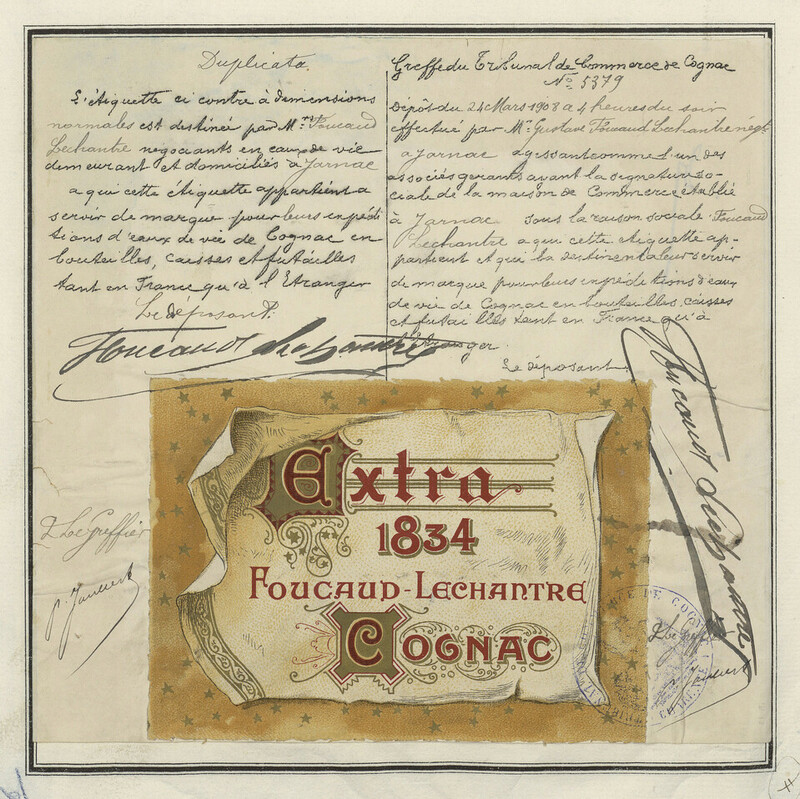 Duplicata
L'étiquette ci contre à dimensions
normales est destinée par Mrs Foucaud
Lechantre négociants en eaux de vie
demeurant et domiciliés à Jarnac
a qui cette étiquette appartient a
servir de marque pour leurs expédi
tions d'eaux de vie de Cognac en
bouteilles, caisses et futailles
tant en France qu'à l'Etranger
Le déposant.
Foucaud Lechantre
Greffe du Tribunal de Commerce de Cognac
No 5379
Dépôt du 24 Mars 1908 à 4 heures du soir
effectué par Mr Gustave Foucaud Lechantre négt
à Jarnac agissant comme l'un des
associés gerants ayant la signature so-
ciale de la maison de Commerce établie
à Jarnac sous la raison sociale Foucaud
Lechantre a qui cette étiquette ap-
partient et qui la destinent a leur servir
de marque pour leurs expéditions d'eaux
de vie de Cognac en bouteilles, caisses
et futailles tant en France qu'à
l'Etranger
Le déposant
Foucaud Lechantre
Extra
1834
Foucaud-Lechantre
Cognac
Le Greffier
DE COGNAC
Le Greff